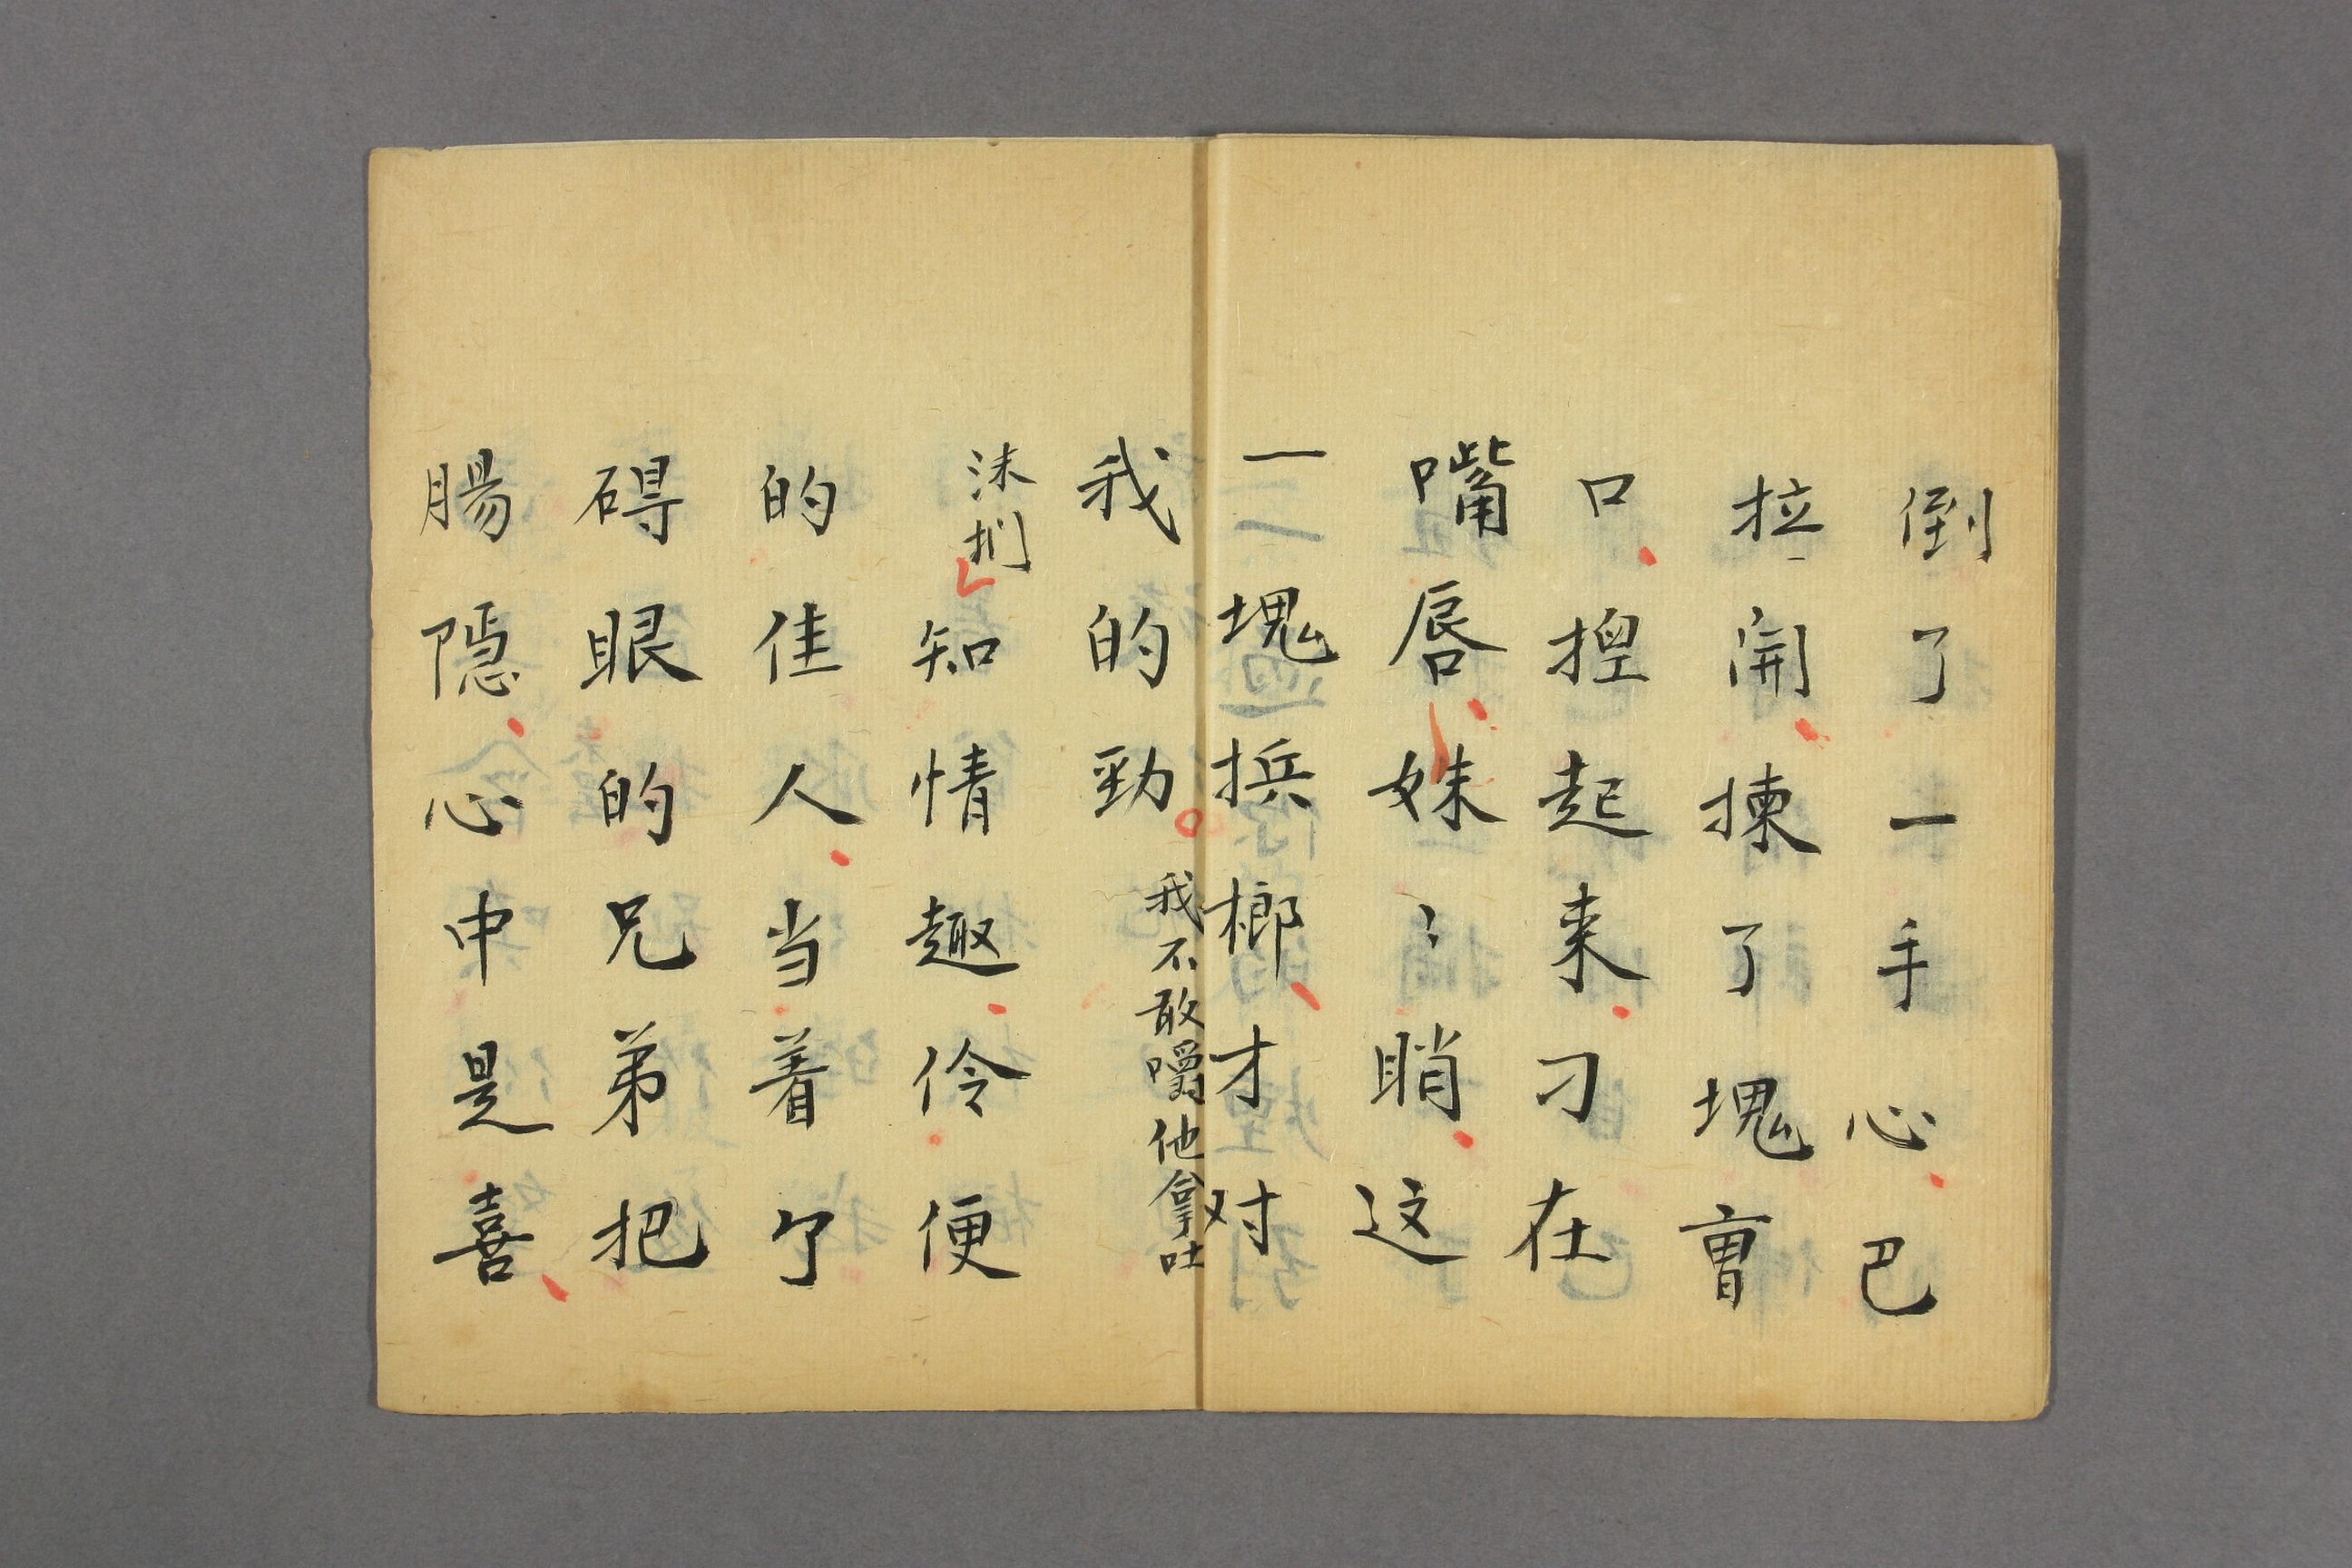 倒了一手心巴
拉開揀了塊㫗
口揑起来刁在
嘴唇妹〻睄这
一塊梹榔才对
我的勁我不敢嚼他拿吐
沫捫知情趣伶便
的佳人当着个
碍眼的兄弟把
腸隠心中是喜